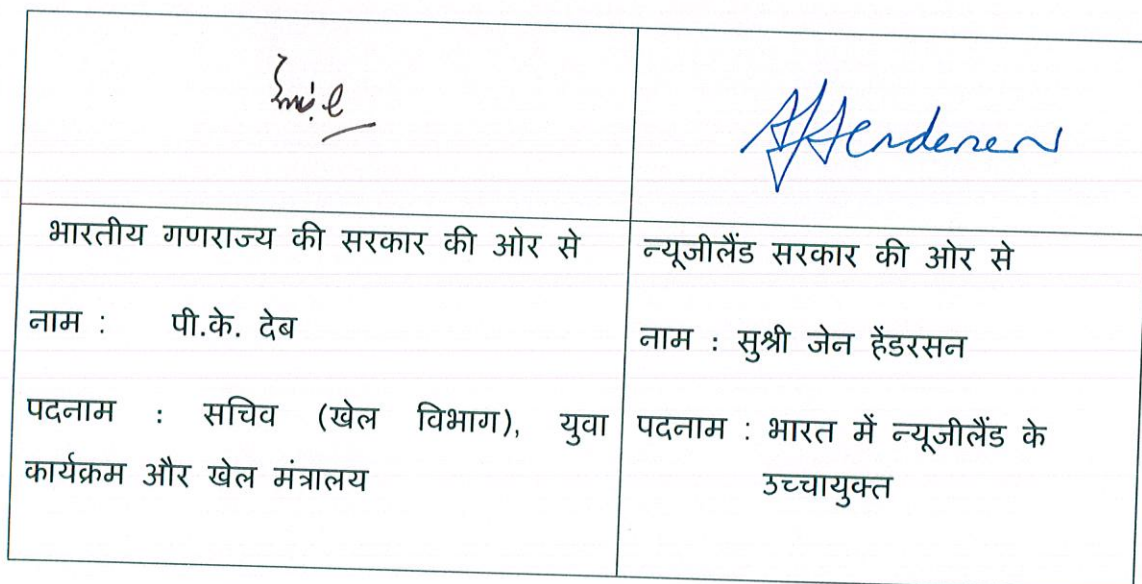 भारतीय गणराज्य की सरकार की ओर से
नाम : पी.के. देब
पदनाम : सचिव (खेल विभाग), युवा
कार्यक्रम और खेल मंत्रालय
न्यूजीलैंड सरकार की ओर से
नाम : सुश्री जेन हेंडरसन
पदनाम : भारत में न्यूजीलैंड के
उच्चायुक्त